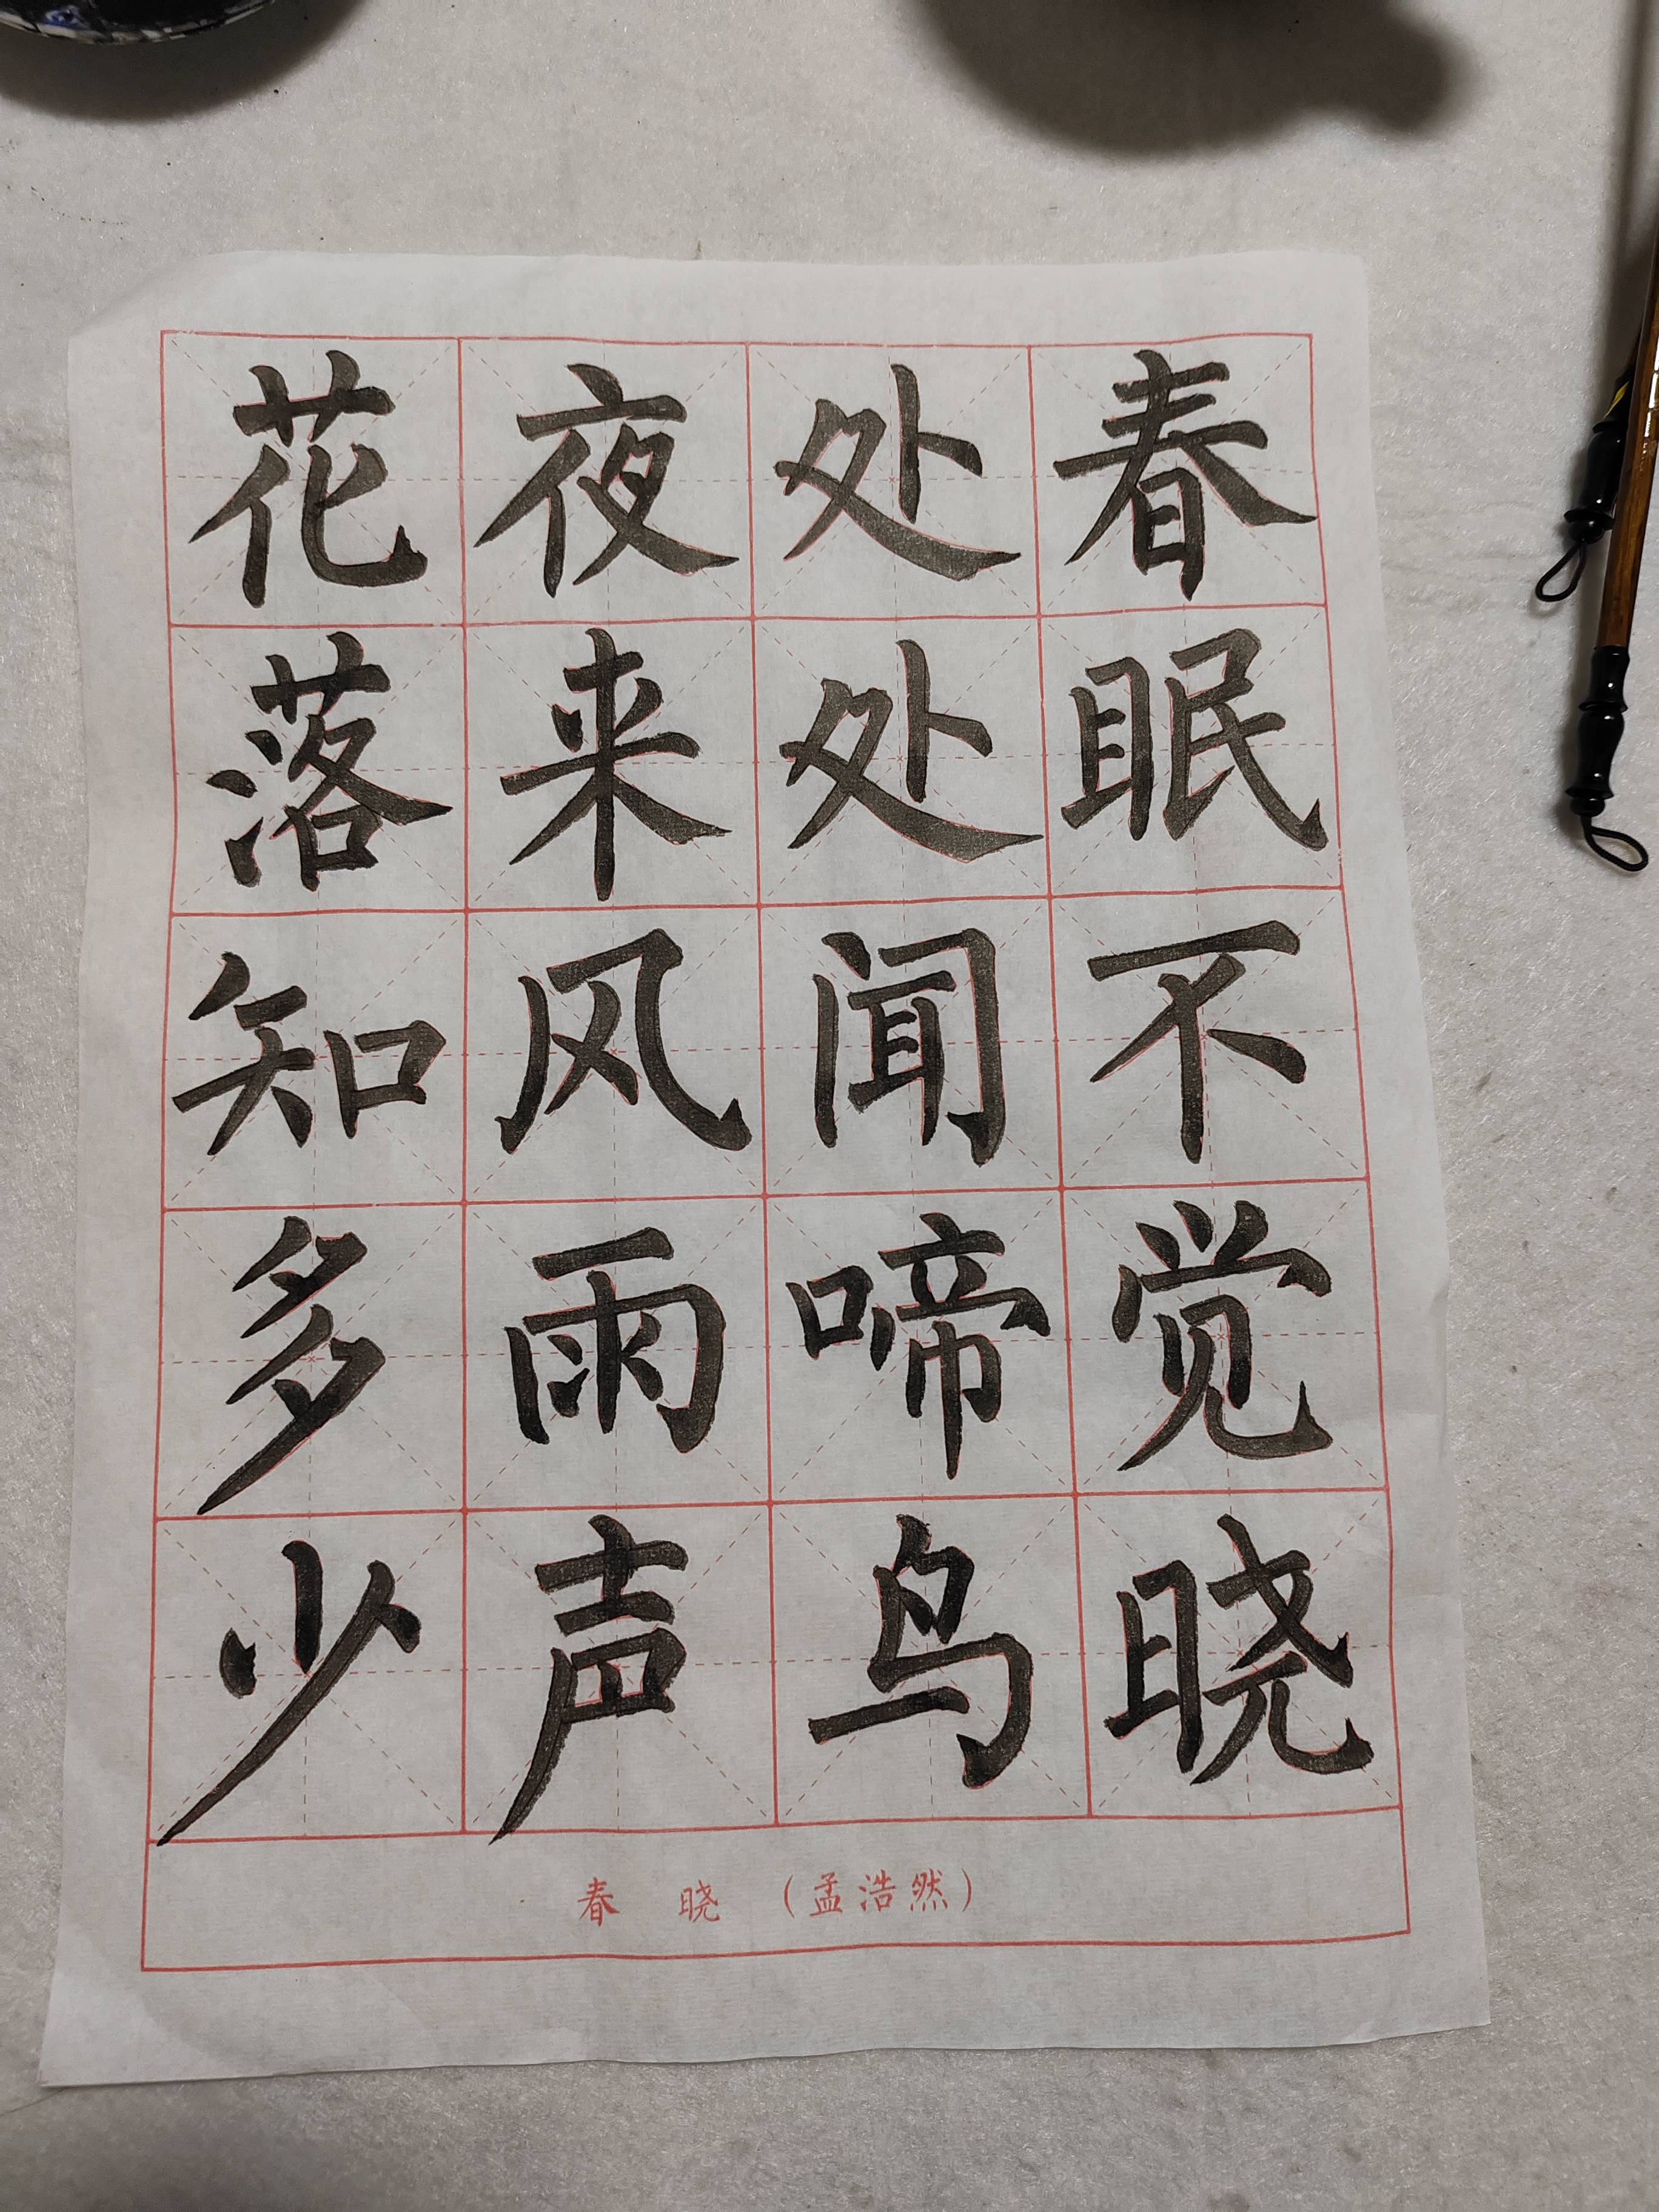 春眠不觉晓
处处闻啼鸟
夜来风雨声
花落知多少
春 晓 （孟浩然）